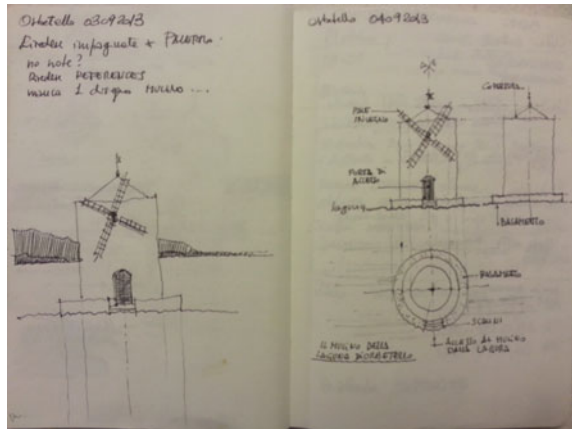 Orbetello 03092013
impaginate +
no note?
REFERENCES
manca 1 disegno MULINO ...
Orbetello 04092013
COPERTURA
PORTA DI
ACCESSO
laguna
BASAMENTO
BASAMENTO
SCALINI
IL MULINO DELLA
LAGUNA D'ORBETELLO
ACCESSO AL MULINO
DALLA LAGUNA